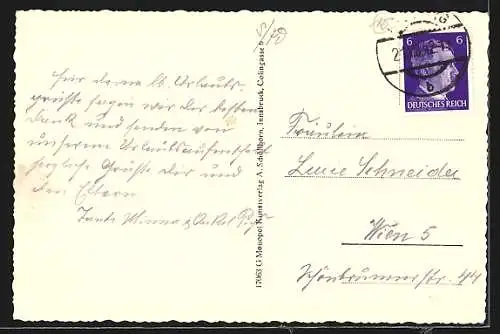 Für deine lb. Urlaubs-
grüße sagen wir dir besten
Dank und senden von
unserem Urlaubsaufenthalt
herzliche Grüße dir und
den Eltern
Tante Minna & Onkel
17063 G Monopol Kunstverlag A. Schöllhorn, Innsbruck, Colingasse 9
6 6
DEUTSCHES REICH
b
Fräulein
Luise Schneider
Wien 5
Schönbrunnerstr. 44